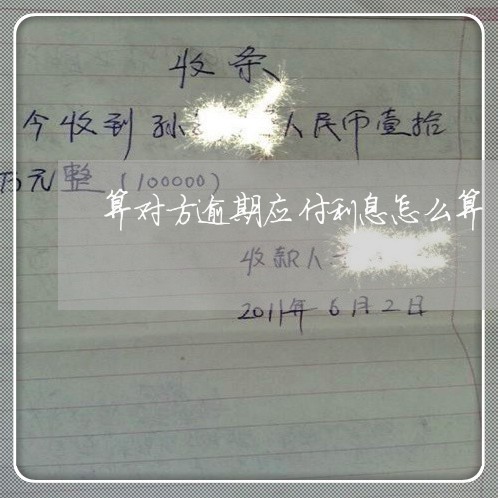 收条
今收到孙 人民币壹拾
万元整(100000)
算对方逾期应付利息怎么算
收款人
2011年6月2日